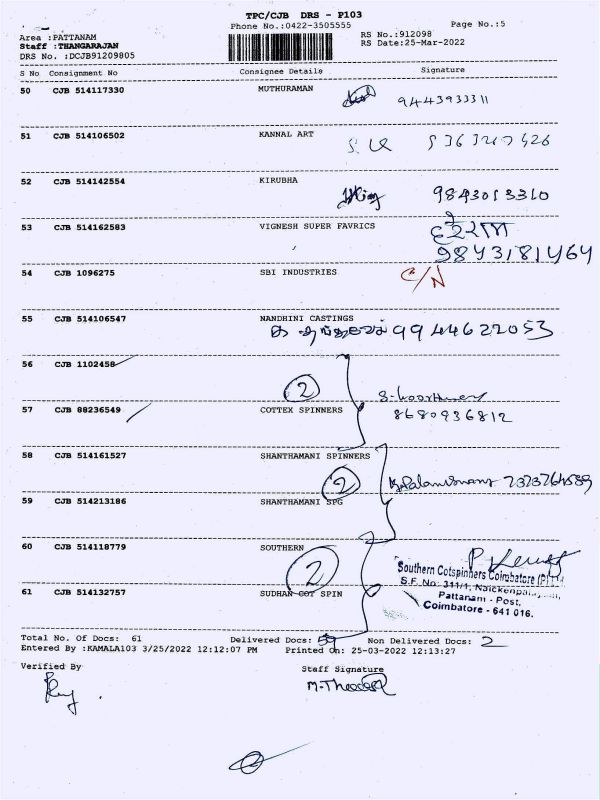 TPC/CJB DRS - P103
Phone No.:0422-3505555
Page No.:5
Area :PATTANAM
RS No.:912098
Staff :THANGARAJAN
RS Date:25-Mar-2022
DRS No. :DCJB91209805
S No Consignment No Consignee Details Signature
50 CJB 514117330 MUTHURAMAN
9443933311
51 CJB 514106502 KANNAL ART
52 CJB 514142554 KIRUBHA
9843013310
53 CJB 514162583 VIGNESH SUPER FAVRICS
9843181464
54 CJB 1096275 SBI INDUSTRIES C/N
55 CJB 514106547 NANDHINI CASTINGS
9944622053
56 CJB 1102458
2
57 CJB 88236549 COTTEX SPINNERS
8680936812
58 CJB 514161527 SHANTHAMANI SPINNERS
2
59 CJB 514213186 SHANTHAMANI SPG
60 CJB 514118779 SOUTHERN
2
Southern Cotspinners Coimbatore (P)
S.F. No: 311/1,
Pattanam - Post,
Coimbatore - 641 016.
61 CJB 514132757 SUDHAN COT SPIN
Total No. Of Docs: 61 Delivered Docs: 59 Non Delivered Docs: 2
Entered By :KAMALA103 3/25/2022 12:12:07 PM Printed On: 25-03-2022 12:13:27
Verified By Staff Signature